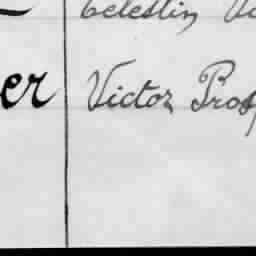 Celestin
er Victor Prosp